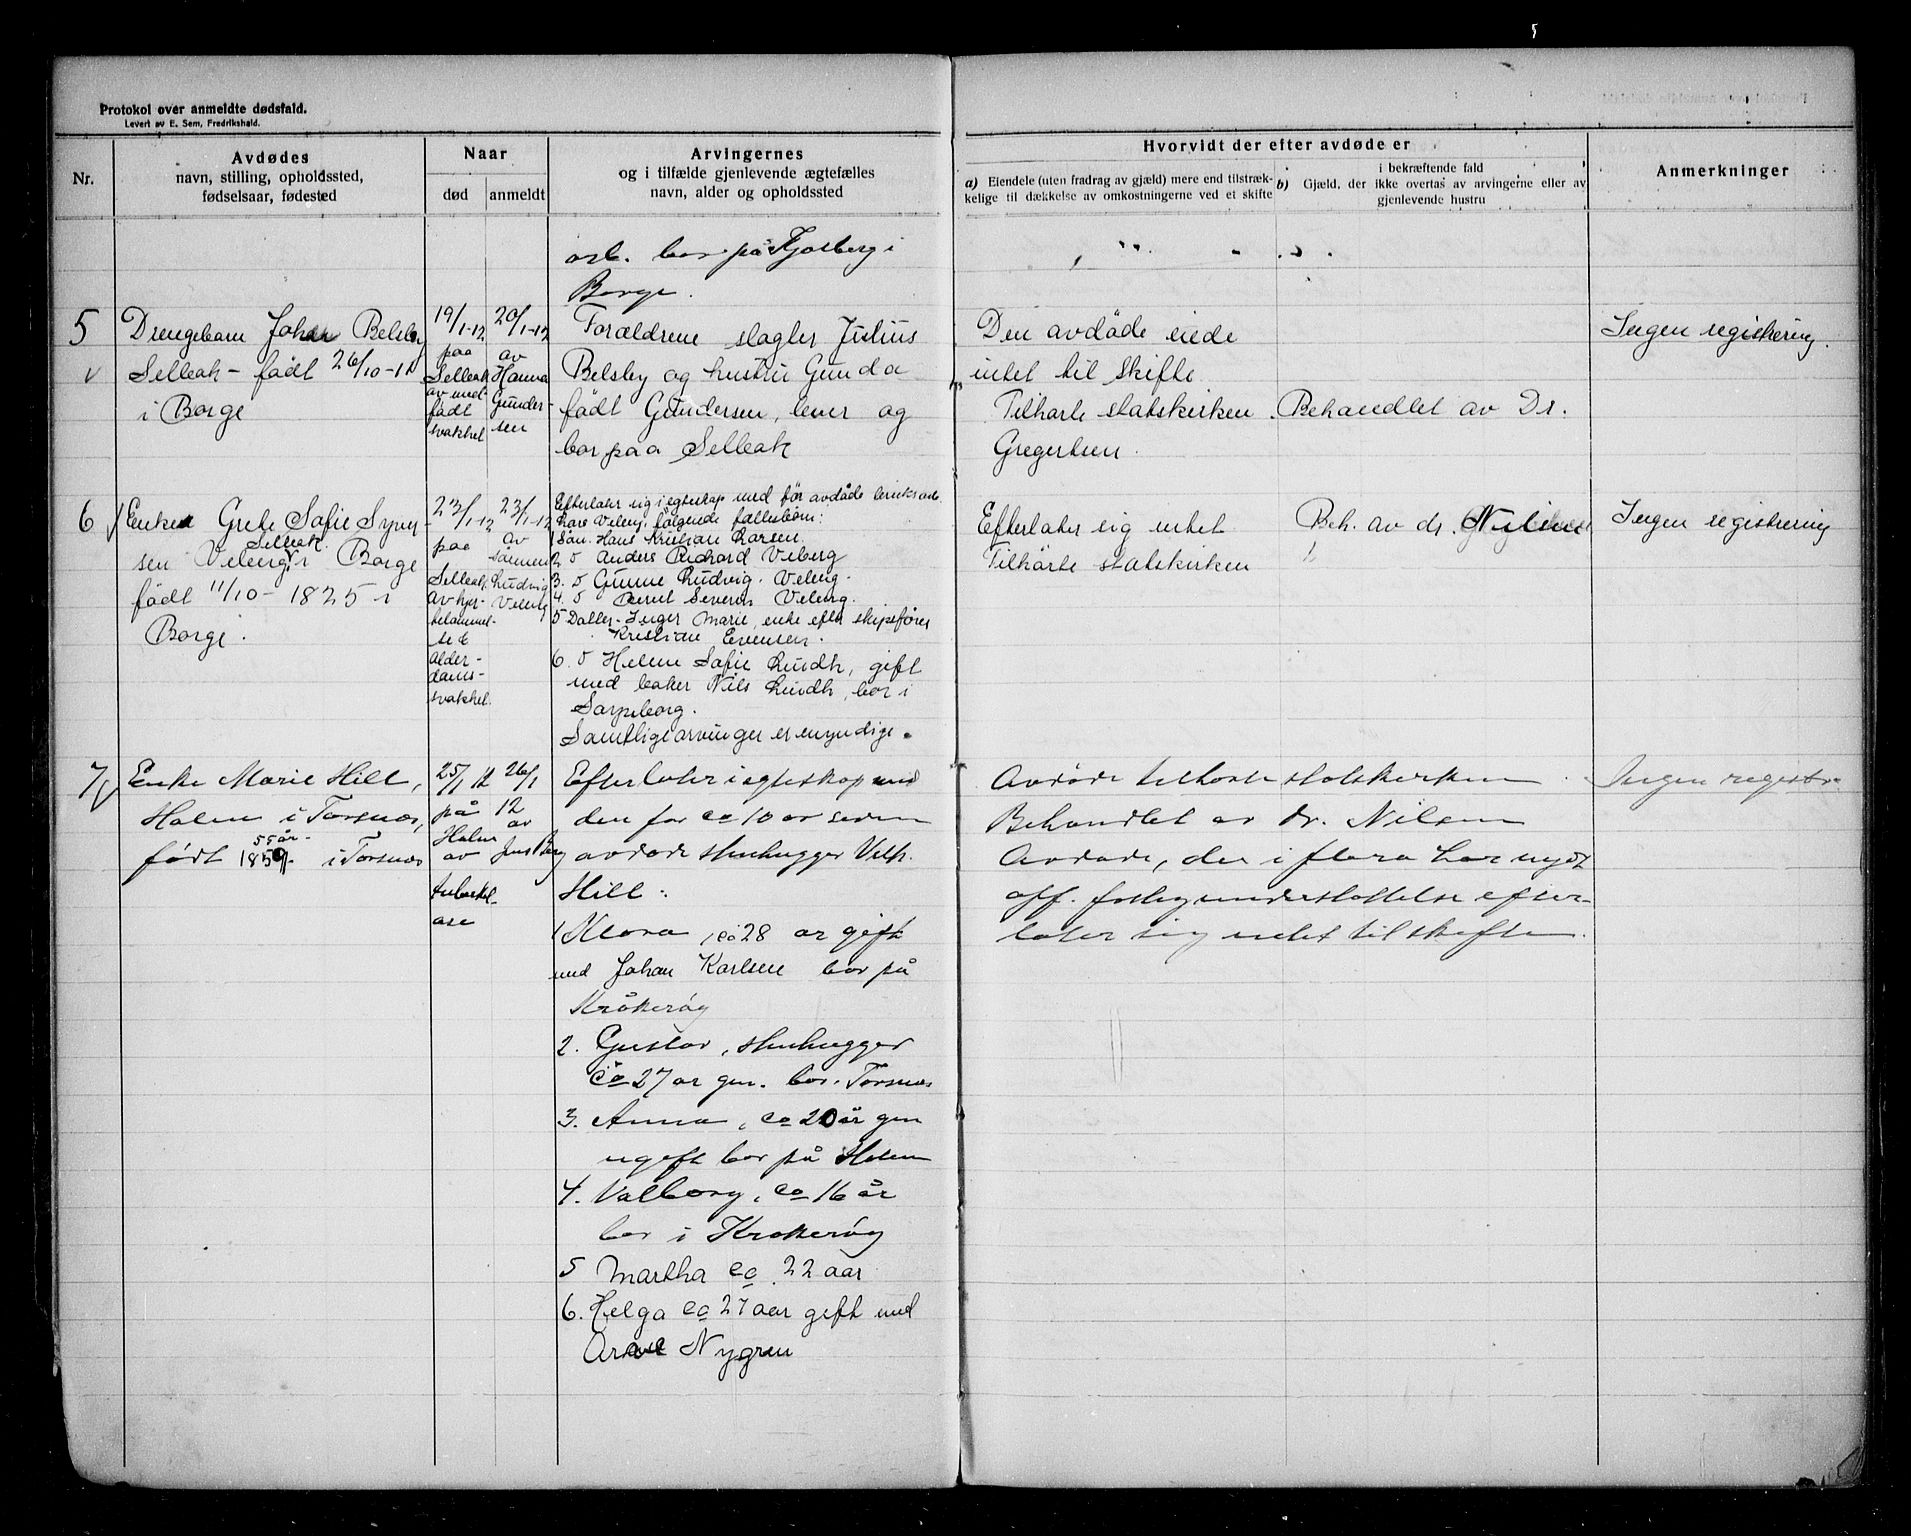 5
Protokol over anmeldte dødsfald.
Levert av E. Sem, Fredrikshald.
Nr.
Avdødes
navn, stilling, opholdssted,
fødselsaar, fødested
Naar
død
anmeldt
Arvingernes
og i tilfælde gjenlevende ægtefælles
navn, alder og opholdssted
Hvorvidt der efter avdøde er
a) Eiendele (uten fradrag av gjæld) mere end tilstræk-
kelige til dækkelse av omkostningerne ved et skifte
i bekræftende fald
b) Gjæld, der ikke overtas av arvingerne eller av
gjenlevende hustru
Anmerkninger
arb. bor på Fjolberg i
Borge.
5
Drengebarn Johan Belsby
Selleak - født 26/10-11
i Borge
19/1-12
paa
Selleak
av med-
født
svakhet
20/1-12
av
Hanna
Gunder-
sen
Forældrene slagter Julius
Belsby og hustru Gunda
født Gundersen, lever og
bor paa Selleak
Den avdøde eiede
intet til skifte.
Tilhørte statskirken. Behandlet av Dr.
Gregertsen.
Ingen registrering.
6
Enke Grete Sofie Syver-
Selleak
sen Veberg i Borge
født 11/10-1825 i
Borge.
23/1-12
paa
Selleak
av hjer-
telammel-
se &
alder-
doms-
svakhet.
23/1-12
av
sønnen
Ludvig
Veberg
Efterlater sig i egteskap med før avdøde bruksarb.
Lars Veberg, følgende fællesbørn:
1 Søn. Hans Kristian Larsen.
2 " Anders Richard Veberg
3. " Gunne Ludvig. Veberg.
4. " Bernt Severin Veberg.
5 Datter - Inger Marie, enke efter skipsfører
Kristian Evensen.
6. " Helene Sofie Lundh, gift
med baker Nils Lundh, bor i
Sarpsborg.
Samtlige arvinger er myndige.
Efterlater sig intet Beh. av dr. Nilsen
Tilhørte statskirken
Ingen registrering
7
Enke Marie Hill,
Holm i Torsnæs,
55 år
født 1859. i Torsnæs
25/1 12
på
Holm
av
tuberkel-
ose
26/1
12
av
Jens Berg
Efterlater i egteskap med
den for ca 10 år siden
avdøde stenhugger Vilh.
Hill:
1 Klara, ca 28 år gift
med Johan Karlsen bor på
Kråkerøy
2. Gustav, stenhugger
ca 27 år gm. bor. Torsnæs
3. Anna, ca 20 år gm
ugift bor på Holm
4. Valborg, ca 16 år
bor i Krakerøy
5 Martha ca 22 aar
6. Helga ca 27 aar gift med
Nygren
Avdøde tilhørte statskirken
Behandlet av dr. Nilsen
Avdøde, der i flere år har nydt
off. fattigunderstøttelse efter-
later sig intet til skifte.
Ingen registr.